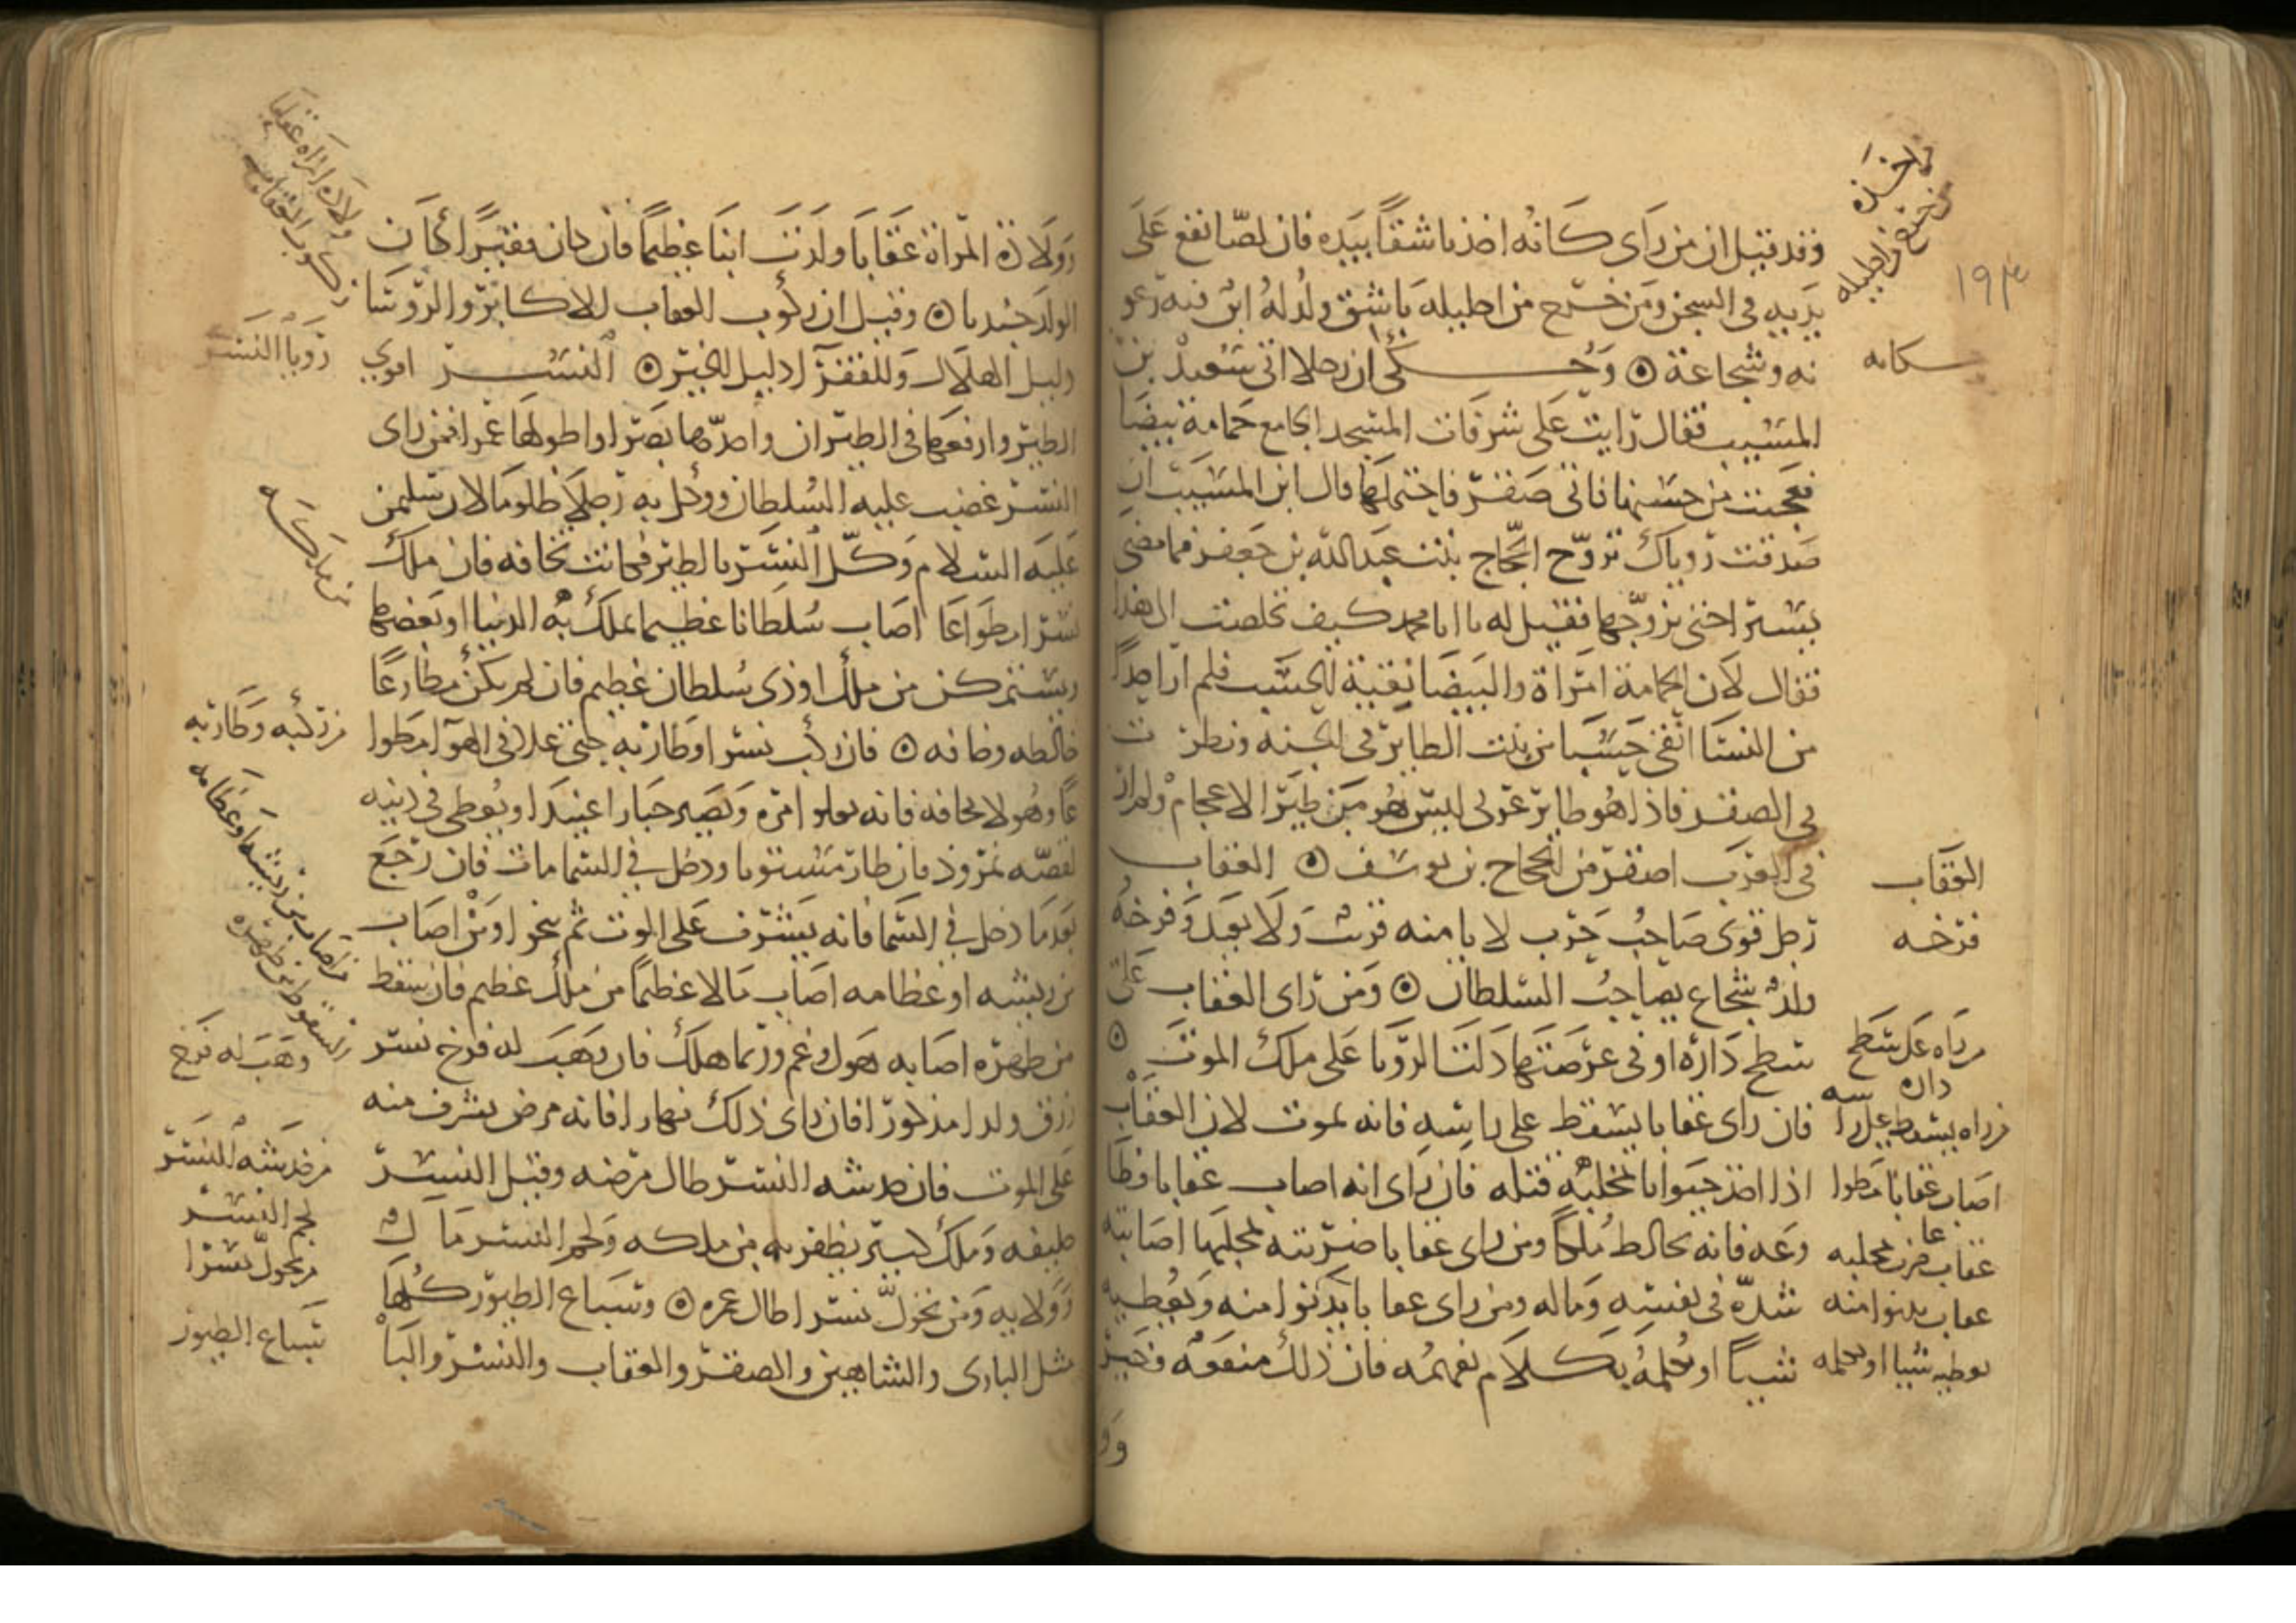 وقد قيل ان من راى كانه اخذ باشقا بيده فان لصا يقع على
يديه فى السجن ومن خرج من احليله باشق ولد له ابن فيه رعو
نه وشجاعة ۞ وحكى ان رجلا اتى سعيد بن
المسيب فقال رايت على شرفات المسجد الجامع حمامة بيضا
فعجبت من حسنها فاتى صقر فاحتملها قال ابن المسيب ان
صدقت روياك تزوج الحجاج بنت عبد الله بن جعفر فما مضى
يسير احتى تزوجها فقيل له يا ابا محمد كيف تخلصت الى هذا
فقال لان الحمامة امراة والبيضا نقية الحسب فلم ار احدا
من النسا انقى حسبا من بنت الطاير فى الجنه ونظرت
فى الصقر فاذا هو طاير عربى ليس هو من طير الاعجام ولم ار
فى العرب اصقر من الحجاج بن يوسف ۞ العقاب
رجل قوى صاحب حرب لا يامنه قريب ولا بعيد وفرخه
ولد شجاع يصاحب السلطان ۞ ومن راى العقاب على
سطح داره او فى عرصتها دلت الرويا على ملك الموت ۞
فان راى عقابا يسقط على راسه فانه يموت لان العقاب
اذا اخذ حيوانا بمخلبه قتله فان راى انه اصاب عقابا فطا
وعه فانه يخالط ملكا ومن راى عقابا ضربته بمخلبها اصابته
شدة فى نفسه وماله ومن راى عقابا يدنوا منه ويعطيه
شييا او يكلمه بكلام يفهمه فان ذلك منفعه وخير
وو
١٩٣
من خرج من احليله
العقاب
فرخه
من راه على سطح
داره
من راه يسقط على راسه
اصاب عقابا مطوا
عا
عقاب ضرب بمخلبه
عقاب يدنوا منه
يعطيه شييا او يكلمه
وولادة المراة عقابا ولدت ابنا عظيما فان كان فقيرا كان
الولد جنديا ۞ وقيل ان ركوب العقاب للاكابر والروسا
دليل الهلاك وللفقرا دليل الخير ۞ النسر اقوي
الطير وارفعها فى الطيران واحدها بصرا واطولها عمرا فمن راى
النسر غضب عليه السلطان ووكل به رجلا ظلوما لان سليمن
عليه السلام وكل النسر بالطير فكانت تخافه فان ملك
نسرا مطواعا اصاب سلطانا عظيما يملك به الدنيا او بعضها
ويستمكن من ملك او ذى سلطان عظيم فان لم يكن مطاوعا
خالطه وخانه ۞ فان ركب نسرا وطار به حتى علا فى الهوا مطوا
عا وهو لا يخافه فانه يعلو امره ويصير جبارا عنيدا ويطغى فى دينه
لقصه نمرود فان طار مستويا ودخل فى السما مات فان رجع
بعدما دخل فى السما فانه يشرف على الموت ثم ينجوا ومن اصاب
من ريشه او عظامه اصاب مالا عظيما من ملك عظيم فان سقط
من ظهره اصابه هول وغم وربما هلك فان وهب له فرخ نسر
رزق ولدا مذكورا فان راى ذلك نهارا فانه مرض يشرف منه
على الموت فان خدشه النسر طال مرضه وقيل النسر
خليفه وملك كبير يظفر به من ملكه ولحم النسر مال
وولايه ومن تحول نسرا طال عمره ۞ وسباع الطيور كلها
مثل البازى والشاهين والصقر والعقاب والنسر والبا
ولادة المراة عقابا
ركوب العقاب
رويا النسر
من ملكه
من ركبه وطار به
من اصاب من ريشه او عظامه
السقوط من ظهره
وهب له فرخ
من خدشه النسر
لحم النسر
من تحول نسرا
سباع الطيور